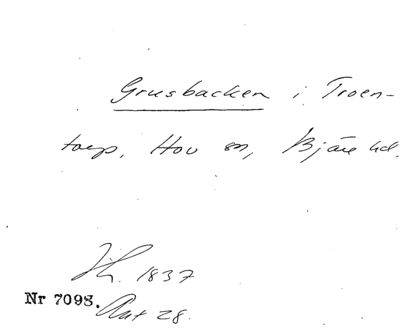 Grusbacken i Troen-
torp, Hov sn, Bjäre hd.
Jh. 1837
Nr 7098. Akt 28.